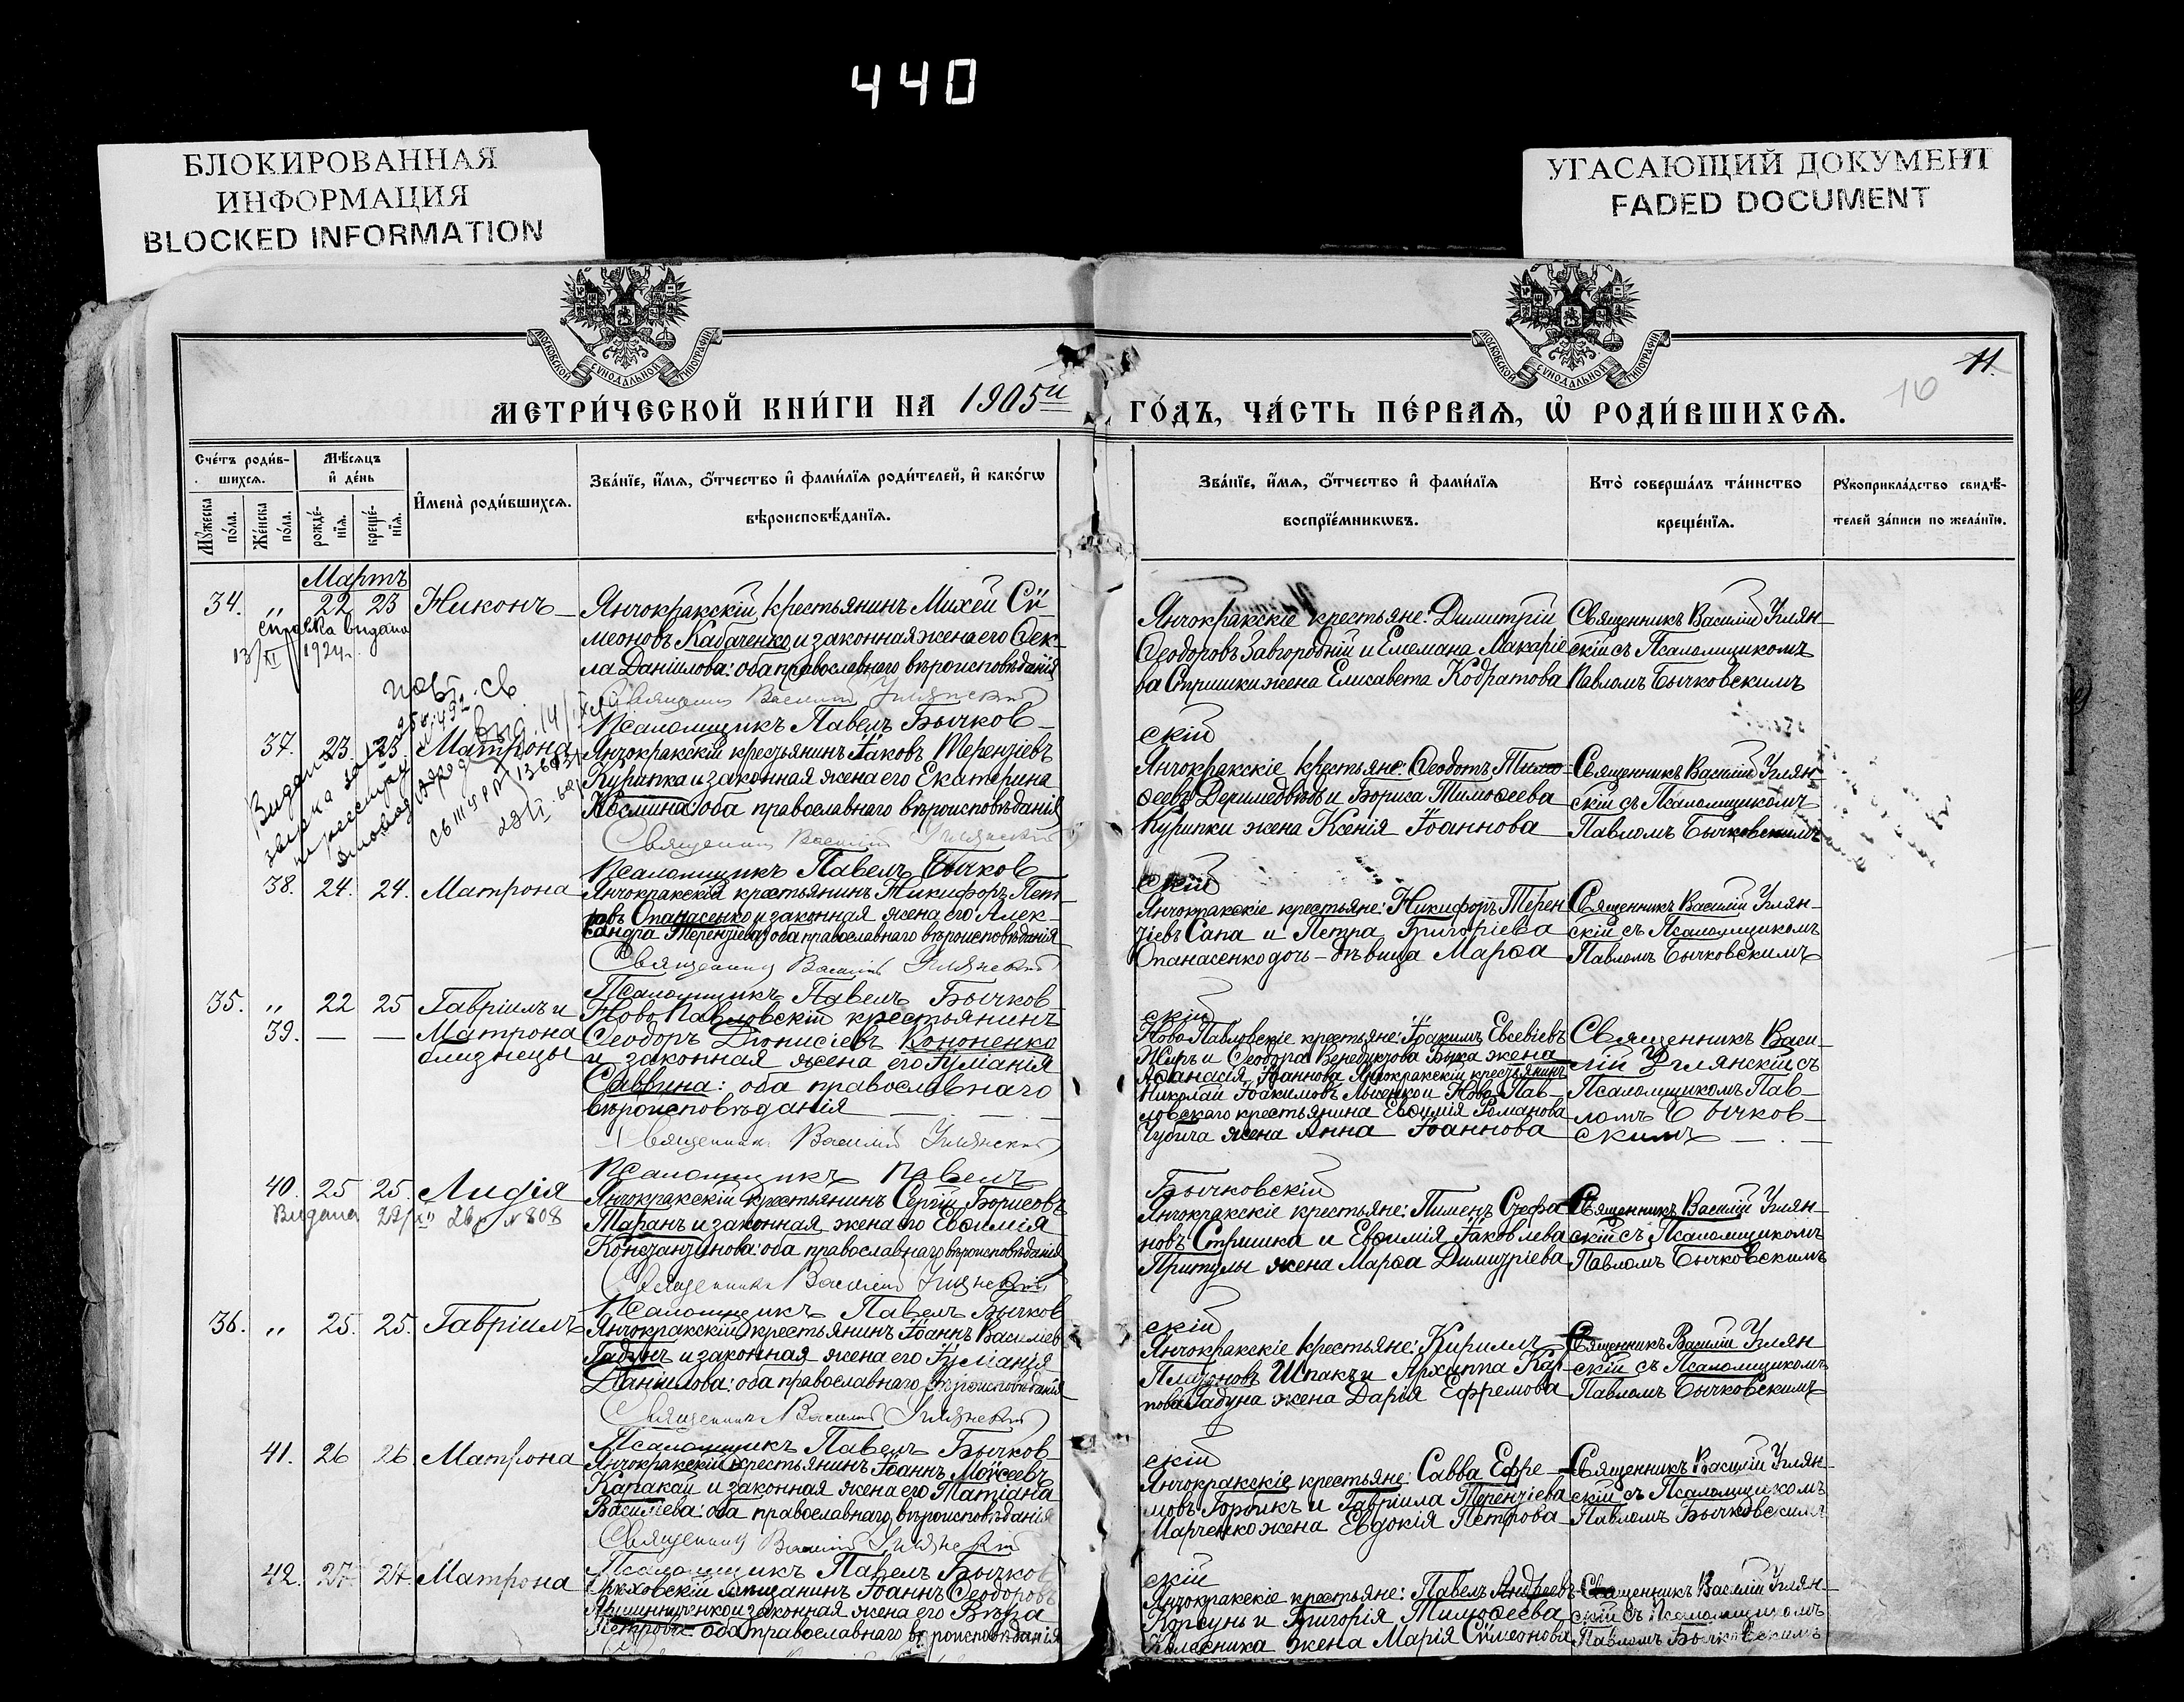 440
БЛОКИРОВАННАЯ
ИНФОРМАЦИЯ
BLOCKED INFORMATION
УГАСАЮЩИЙ ДОКУМЕНТ
FADED DOCUMENT
МОСКОВСКОЙ СѴНОДАЛЬНОЙ ТИПОГРАФІИ
МОСКОВСКОЙ СѴНОДАЛЬНОЙ ТИПОГРАФІИ
11.
10
МЕТРИ́ЧЕСКОЙ КНИ́ГИ НА 1905й
ГО́ДЪ, ЧА́СТЬ ПЕ́РВАѦ, Ѡ РОДИ́ВШИХСѦ.
Сче́тъ роди́вшихсѧ.
Мꙋжеска по́ла.
Же́нска по́ла.
Мѣ́сѧцъ и҆ де́нь
рожде́нїѧ.
креще́нїѧ.
И҆мена̀ роди́вшихсѧ.
Зва́нїе, и҆́мѧ, ѻ҆́тчество и҆ фами́лїѧ роди́телей, и҆ како́гѡ
вѣроисповѣ́данїѧ.
Зва́нїе, и҆́мѧ, ѻ҆́тчество и҆ фами́лїѧ
воспрїе́мникѡвъ.
Кто̀ соверша́лъ та́инство
креще́нїѧ.
Рꙋкоприкла́дство свидѣ́-
телей за́писи по жела́нїю.
Мартъ
34. " 22 23 Никонъ
Справка видана
13/XI 1924 г.
Янчокракскій крестьянинъ Михей Си-
меоновъ Кабаченко и законная жена его Ѳек-
ла Даніилова: оба православнаго вѣроисповѣданія
Священникъ Василій Углянскій
Псаломщикъ Павелъ Бычков-
Янчокракскіе крестьяне: Димитрій
Ѳеодоровъ Завгородній и Емельяна Макаріе
ва Стришки жена Елисавета Кодратова
скій
Священникъ Василій Углян-
скій съ Псаломщикомъ
Павломъ Бычковскимъ
37. 23. 23. Матрона
Янчокракскій крестьянинъ Іаковъ Терентіевъ
Курипка и законная жена его Екатерина
Космина: оба православнаго вѣроисповѣданія
Священникъ Василій Углянскій
Псаломщикъ Павелъ Бычков
Янчокракскіе крестьяне: Ѳеодотъ Тимо-
ѳеевъ Дериведвѣдь и Бориса Тимоѳеева
Курипки жена Ксенія Іоаннова
скій
Священникъ Василій Углян-
скій съ Псаломщикомъ
Павломъ Бычковскимъ
38. 24. 24. Матрона
Янчокракскій крестьянинъ Никифоръ Пет-
ровъ Опанасенко и законная жена его Алек-
сандра Терентіева: оба православнаго вѣроисповѣданія
Священникъ Василій Углянскій
Псаломщикъ Павелъ Бычков-
Янчокракскіе крестьяне: Никифоръ Терен
тіевъ Сапа и Петра Григоріева
Опанасенко дочь-дѣвица Марѳа
скій
Священникъ Василій Углян-
скій съ Псаломщикомъ
Павломъ Бычковскимъ
35. " 22 25 Гавріилъ и
39. — — Матрона
близнецы
Ново Павловскій крестьянинъ
Ѳеодоръ Діонисіевъ Кононенко
и законная жена его Іуліанія
Саввина: оба православнаго
вѣроисповѣданія
Священникъ Василій Углянскій
Псаломщикъ Павелъ
Ново-Павловскіе крестьяне: Іоакимъ Евсевіевъ
Жиръ и Ѳеодора Венедиктова Быка жена
Аѳанасія Іоаннова Янчокракскій крестьянинъ
Николай Іоакимовъ Лысенко и Ново-Пав-
ловскаго крестьянина Евѳимія Романова
Чубича жена Анна Іоаннова
Бычковскій
Священникъ Васи-
лій Углянскій съ
Псаломщикомъ Пав-
ломъ Бычков-
скимъ
40. 25 25. Лидія
Видана 28/XII 26р №808
Янчокракскій крестьянинъ Сергій Борисовъ
Таранъ и законная жена его Евѳимія
Константинова: оба православнаго вѣроисповѣданія
Священникъ Василій Углянскій
Псаломщикъ Павелъ Бычков
Янчокракскіе крестьяне: Пименъ Стефа
новъ Стришка и Евѳимія Іаковлева
Притулы жена Марѳа Димитріева
скій
Священникъ Василій Углян-
скій съ Псаломщикомъ
Павломъ Бычковскимъ
36. " 25. 25. Гавріилъ
Янчокракскій крестьянинъ Іоаннъ Василіев
Гадунъ и законная жена его Іуліанія
Даніилова: оба православнаго вѣроисповѣданія
Священникъ Василій Углянскій
Псаломщикъ Павелъ Бычков-
Янчокракскіе крестьяне: Кириллъ
Платоновъ Шпакъ и Архиппа Кар-
пова Гадуна жена Дарія Ефремова
скій
Священникъ Василій Углян
скій съ Псаломщикомъ
Павломъ Бычковскимъ
41. 26 26 Матрона
Янчокракскій крестьянинъ Іоаннъ Моѵсеевъ
Каракай и законная жена его Татіана
Василіева: оба православнаго вѣроисповѣданія
Священникъ Василій Углянскій
Псаломщикъ Павелъ Бычков
Янчокракскіе крестьяне: Савва Ефре-
мовъ Гортикъ и Гавріила Терентіева
Марченко жена Евдокія Петрова
скій
Священникъ Василій Углян-
скій съ Псаломщикомъ
Павломъ Бычковскимъ
42. 27. 27. Матрона
Орѣховскій мѣщанинъ Іоаннъ Ѳеодоровъ
и законная жена его Вѣра
Петрова: оба православнаго вѣроисповѣданія
Янчокракскіе крестьяне: Павелъ Андреевъ
Корсунь и Григорія Тимоѳеева
Колесника жена Марія Симеонова
Священникъ Василій Углян-
скій съ Псаломщикомъ
Павломъ Бычковскимъ